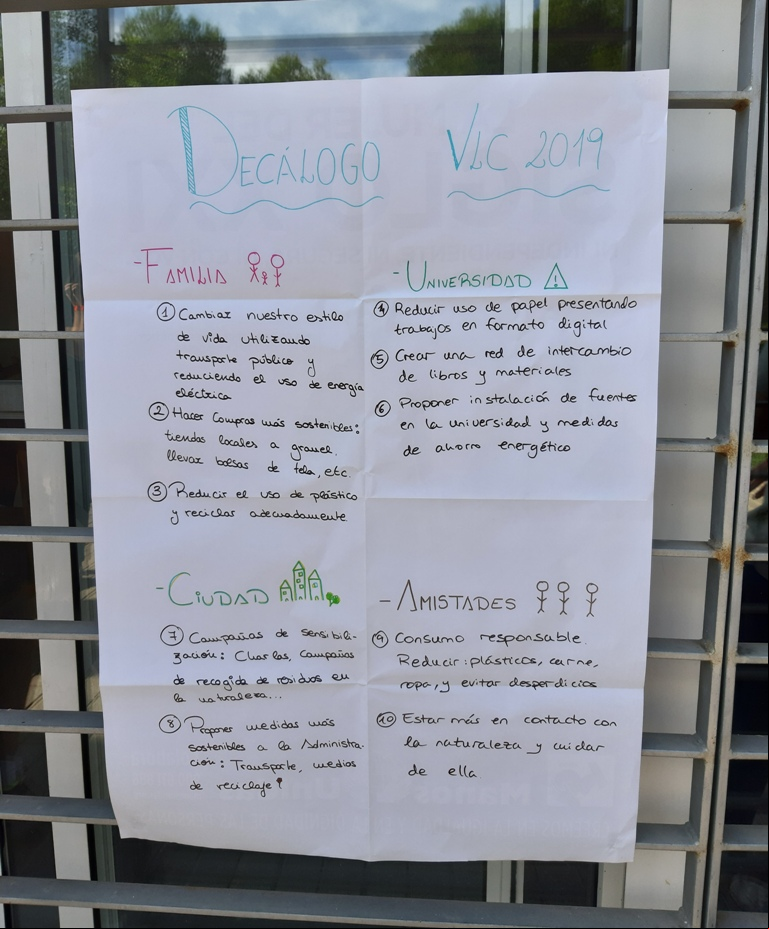 DECÁLOGO VLC 2019
-FAMILIA
① Cambiar nuestro estilo
de vida utilizando
transporte público y
reduciendo el uso de energía
eléctrica
② Hacer Compras más sostenibles:
tiendas locales a granel,
llevar bolsas de tela, etc.
③ Reducir el uso de plástico
y reciclar adecuadamente
-UNIVERSIDAD
④ Reducir uso de papel presentando
trabajos en formato digital
⑤ Crear una red de intercambio
de libros y materiales
⑥ Proponer instalación de fuentes
en la universidad y medidas
de ahorro energético
-CIUDAD
⑦ Campañas de sensibili-
zación: Charlas, campañas
de recogida de residuos en
la naturaleza...
⑧ Proponer medidas más
sostenibles a la Administra-
ción: Transporte, medios
de reciclaje!
- AMISTADES
⑨ Consumo responsable.
Reducir: plásticos, carne,
ropa, y evitar desperdicios
⑩ Estar más en contacto con
la naturaleza y cuidar
de ella